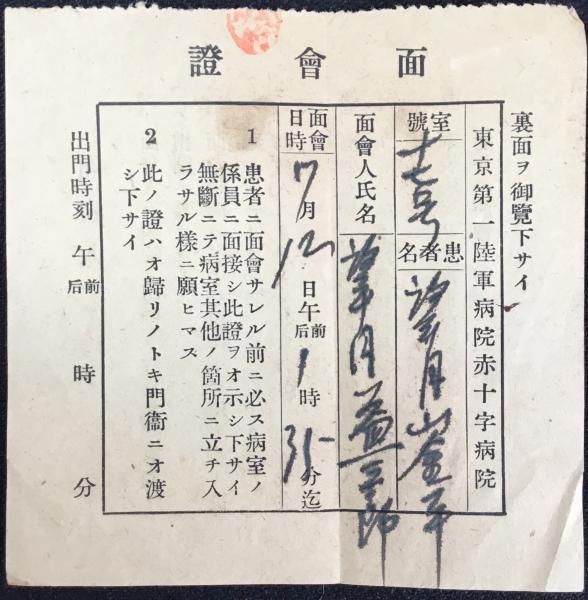 面會證
裏面ヲ御覽下サイ
東京第一陸軍病院赤十字病院
室號
十七号
患者名
望月
面會人氏名
望月益三郎
面會日時
7月12日午前后1時35分迄
1 患者ニ面會サレル前ニ必ス病室ノ
係員ニ面接シ此證ヲオ示シ下サイ
無斷ニテ病室其他ノ箇所ニ立チ入
ラサル樣ニ願ヒマス
2 此ノ證ハオ歸リノトキ門衞ニオ渡
シ下サイ
出門時刻 午前后 時 分